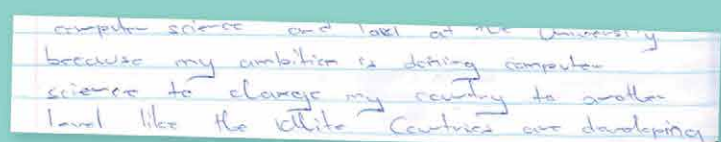 computer science and look at the University
because my ambition is doining computer
science to change my country to another
level like the White Countries are developing